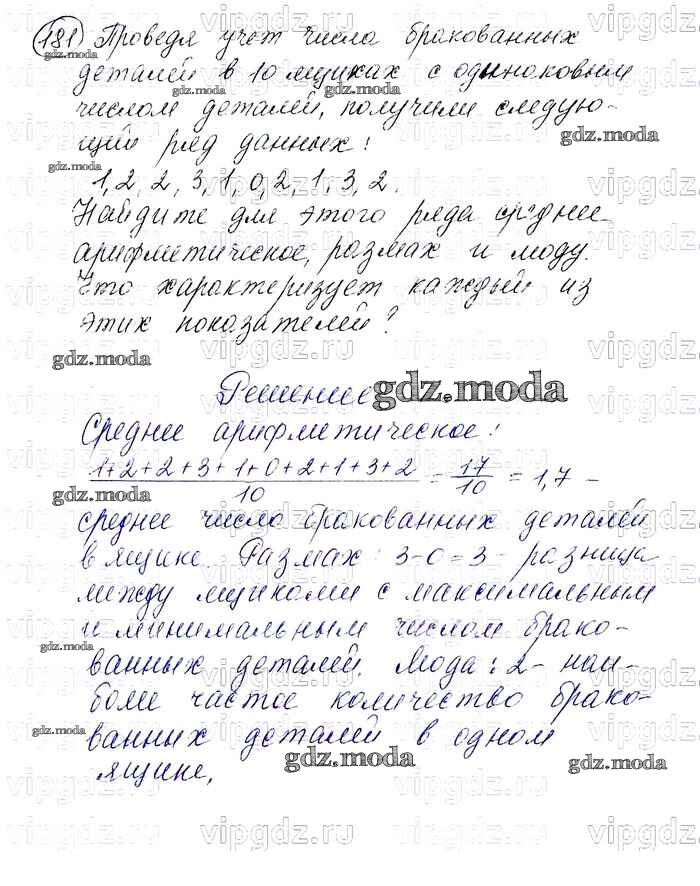 181) Проведя учёт числа бракованных
деталей в 10 ящиках с одинаковым
числом деталей, получили следую-
щий ряд данных:
1, 2, 2, 3, 1, 0, 2, 1, 3, 2.
Найдите для этого ряда среднее
арифметическое, размах и моду.
Что характеризует каждый из
этих показателей?
gdz.moda
Решение gdz.moda
Среднее арифметическое:
1+2+2+3+1+0+2+1+3+2/10 = 17/10 = 1,7 –
среднее число бракованных деталей
в ящике. Размах: 3-0=3 - разница
между ящиками с максимальным
и минимальным числом брако-
ванных деталей. Мода: 2- наи-
более частое количество брако-
ванных деталей в одном
ящике,
gdz.moda
vipgdz.ru